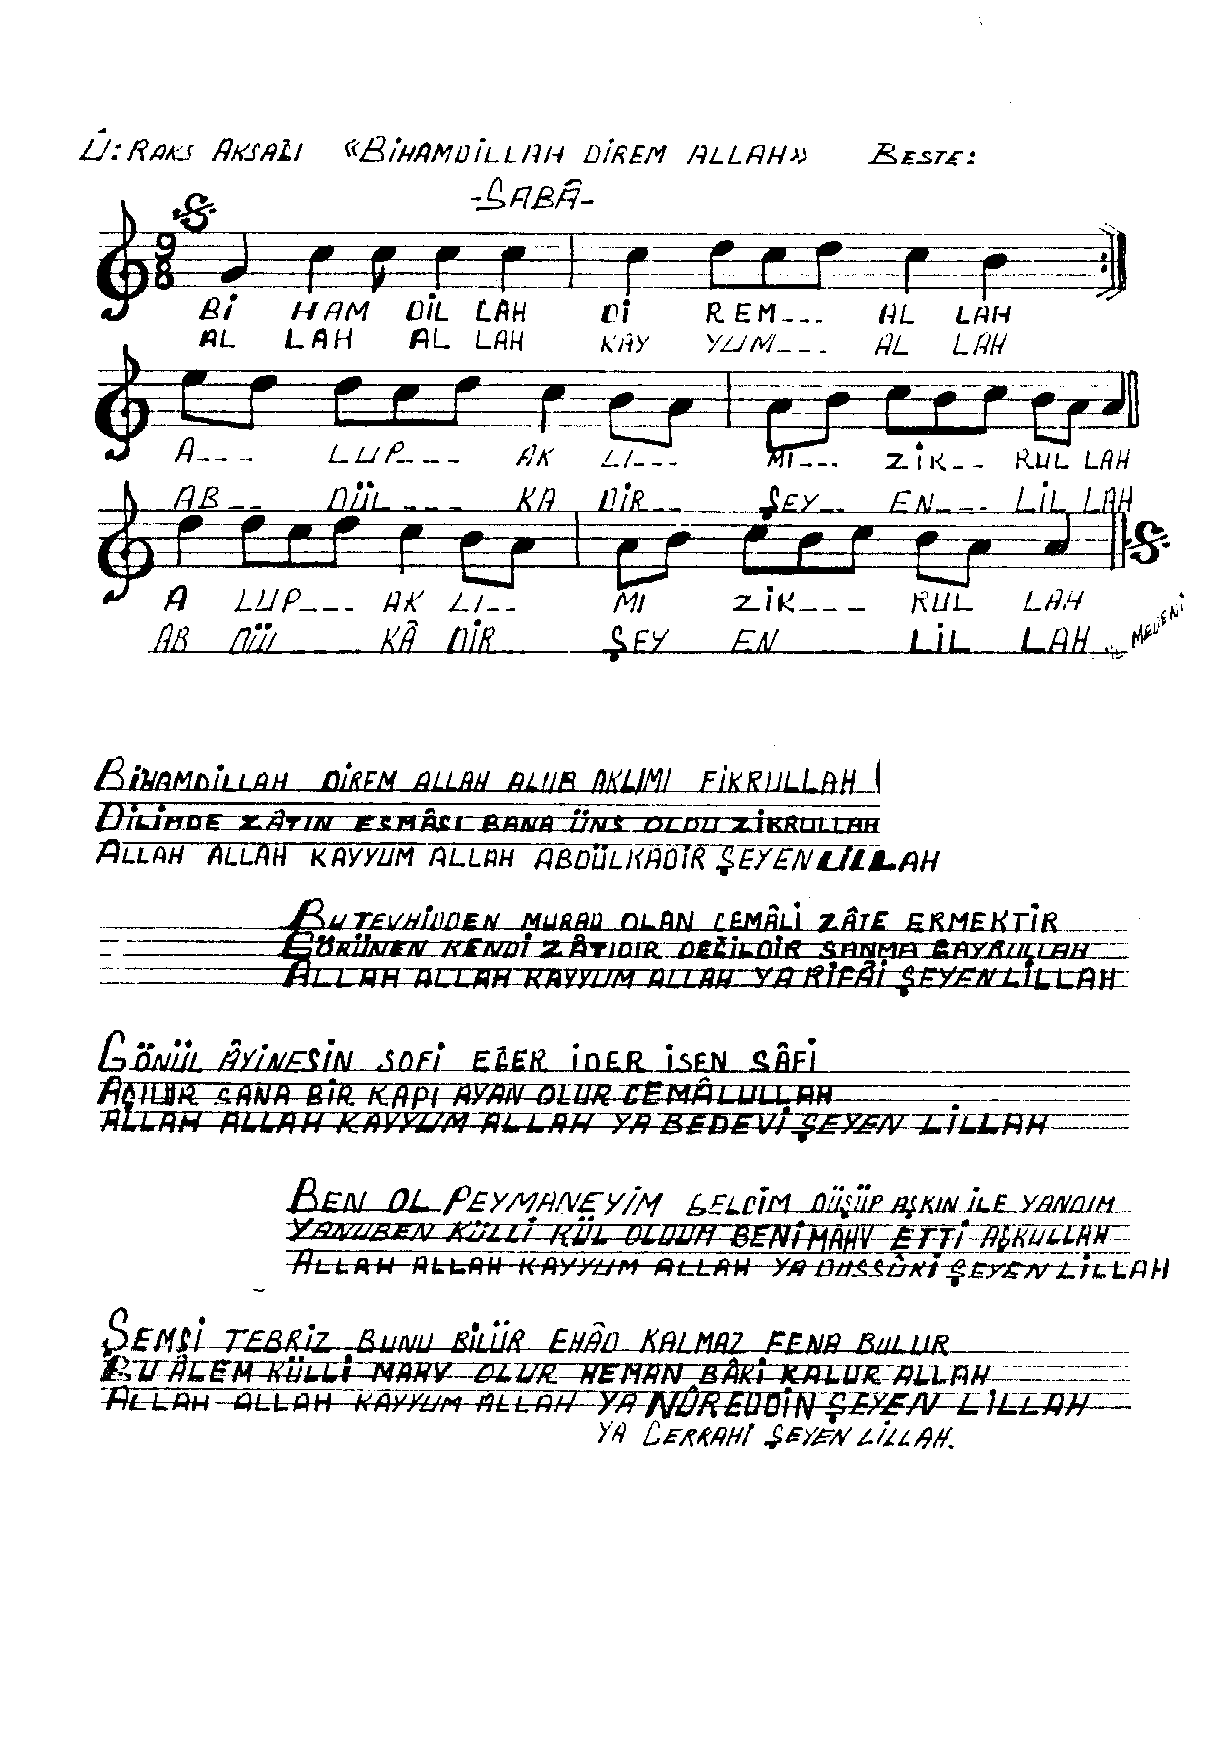 Û: RAKS AKSAĞI «BİHAMDİLLAH DİREM ALLAH» BESTE:
-SABÂ-
9
8
Bİ HAM DİL LAH Dİ REM--- AL LAH
AL LAH AL LAH KAY YUM--- AL LAH
A--- LUP--- AK LI--- MI--- ZİK-- RUL LAH
AB-- DÜL--- KA DİR-- ŞEY-- EN--- LİL LAH
A LUP--- AK LI-- MI ZİK--- RUL LAH
AB DÜL KÂ DİR ŞEY EN LİL LAH
MEDENİ
BİHAMDİLLAH DİREM ALLAH ALUB AKLIMI FİKRULLAH
DİLİMDE ZÂTIN ESMÂSI BANA ÜNS OLDU ZİKRULLAH
ALLAH ALLAH KAYYUM ALLAH ABDÜLKADİR ŞEYEN LİLLAH
BU TEVHİDDEN MURAD OLAN CEMÂLİ ZÂTE ERMEKTİR
GÖRÜNEN KENDİ ZÂTIDIR DEĞİLDİR SANMA GAYRULLAH
ALLAH ALLAH KAYYUM ALLAH YA RİFÂİ ŞEYEN LİLLAH
GÖNÜL ÂYİNESİN SOFİ EĞER İDER İSEN SÂFİ
AÇILUR SANA BİR KAPI AYAN OLUR CEMÂLULLAH
ALLAH ALLAH KAYYUM ALLAH YA BEDEVİ ŞEYEN LİLLAH
BEN OL PEYMANEYİM GELDİM DÜŞÜP AŞKIN İLE YANDIM
YANUBEN KÜLLİ KÜL OLDUM BENİ MAHV ETTİ AŞKULLAH
ALLAH ALLAH KAYYUM ALLAH YA DUSSÛKİ ŞEYEN LİLLAH
ŞEMSİ TEBRİZ BUNU BİLÜR EHÂD KALMAZ FENA BULUR
BU ÂLEM KÜLLİ MAHV OLUR HEMAN BÂKİ KALUR ALLAH
ALLAH ALLAH KAYYUM ALLAH YA NÛREDDİN ŞEYEN LİLLAH
YA CERRAHİ ŞEYEN LİLLAH.